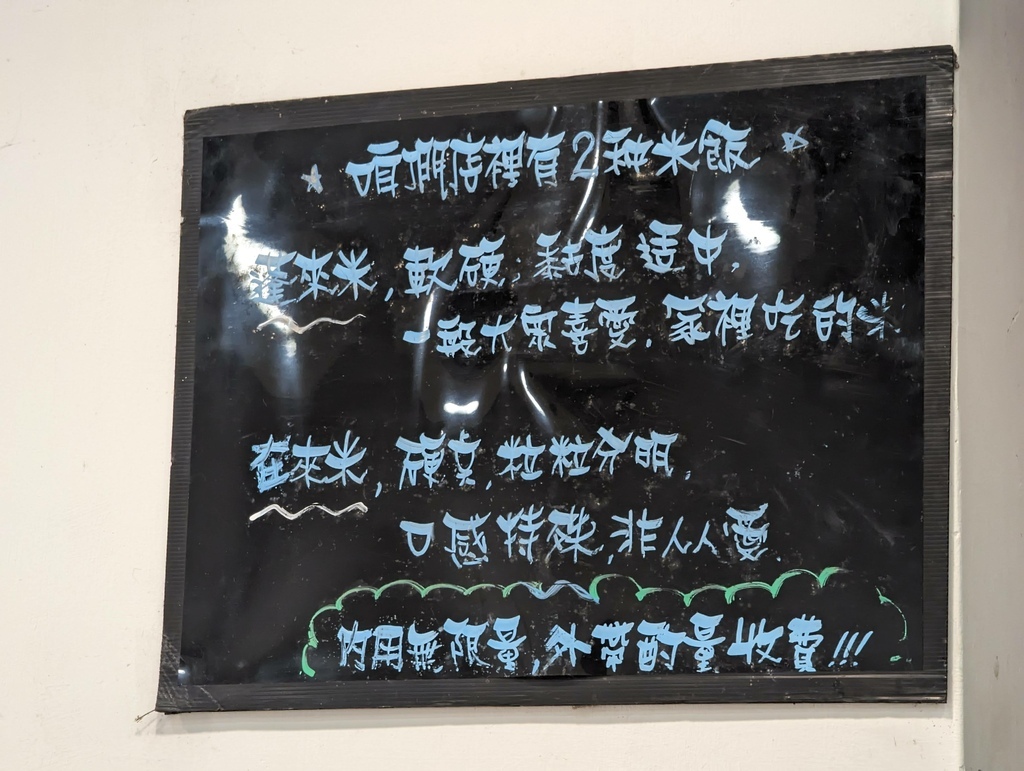 咱們店裡有2种米飯
蓬來米,軟硬,黏度適中,
一般大眾喜愛,家裡吃的米
在來米,硬Q,粒粒分明,
口感特殊,非人人愛.
內用無限量,外帶酌量收費!!!